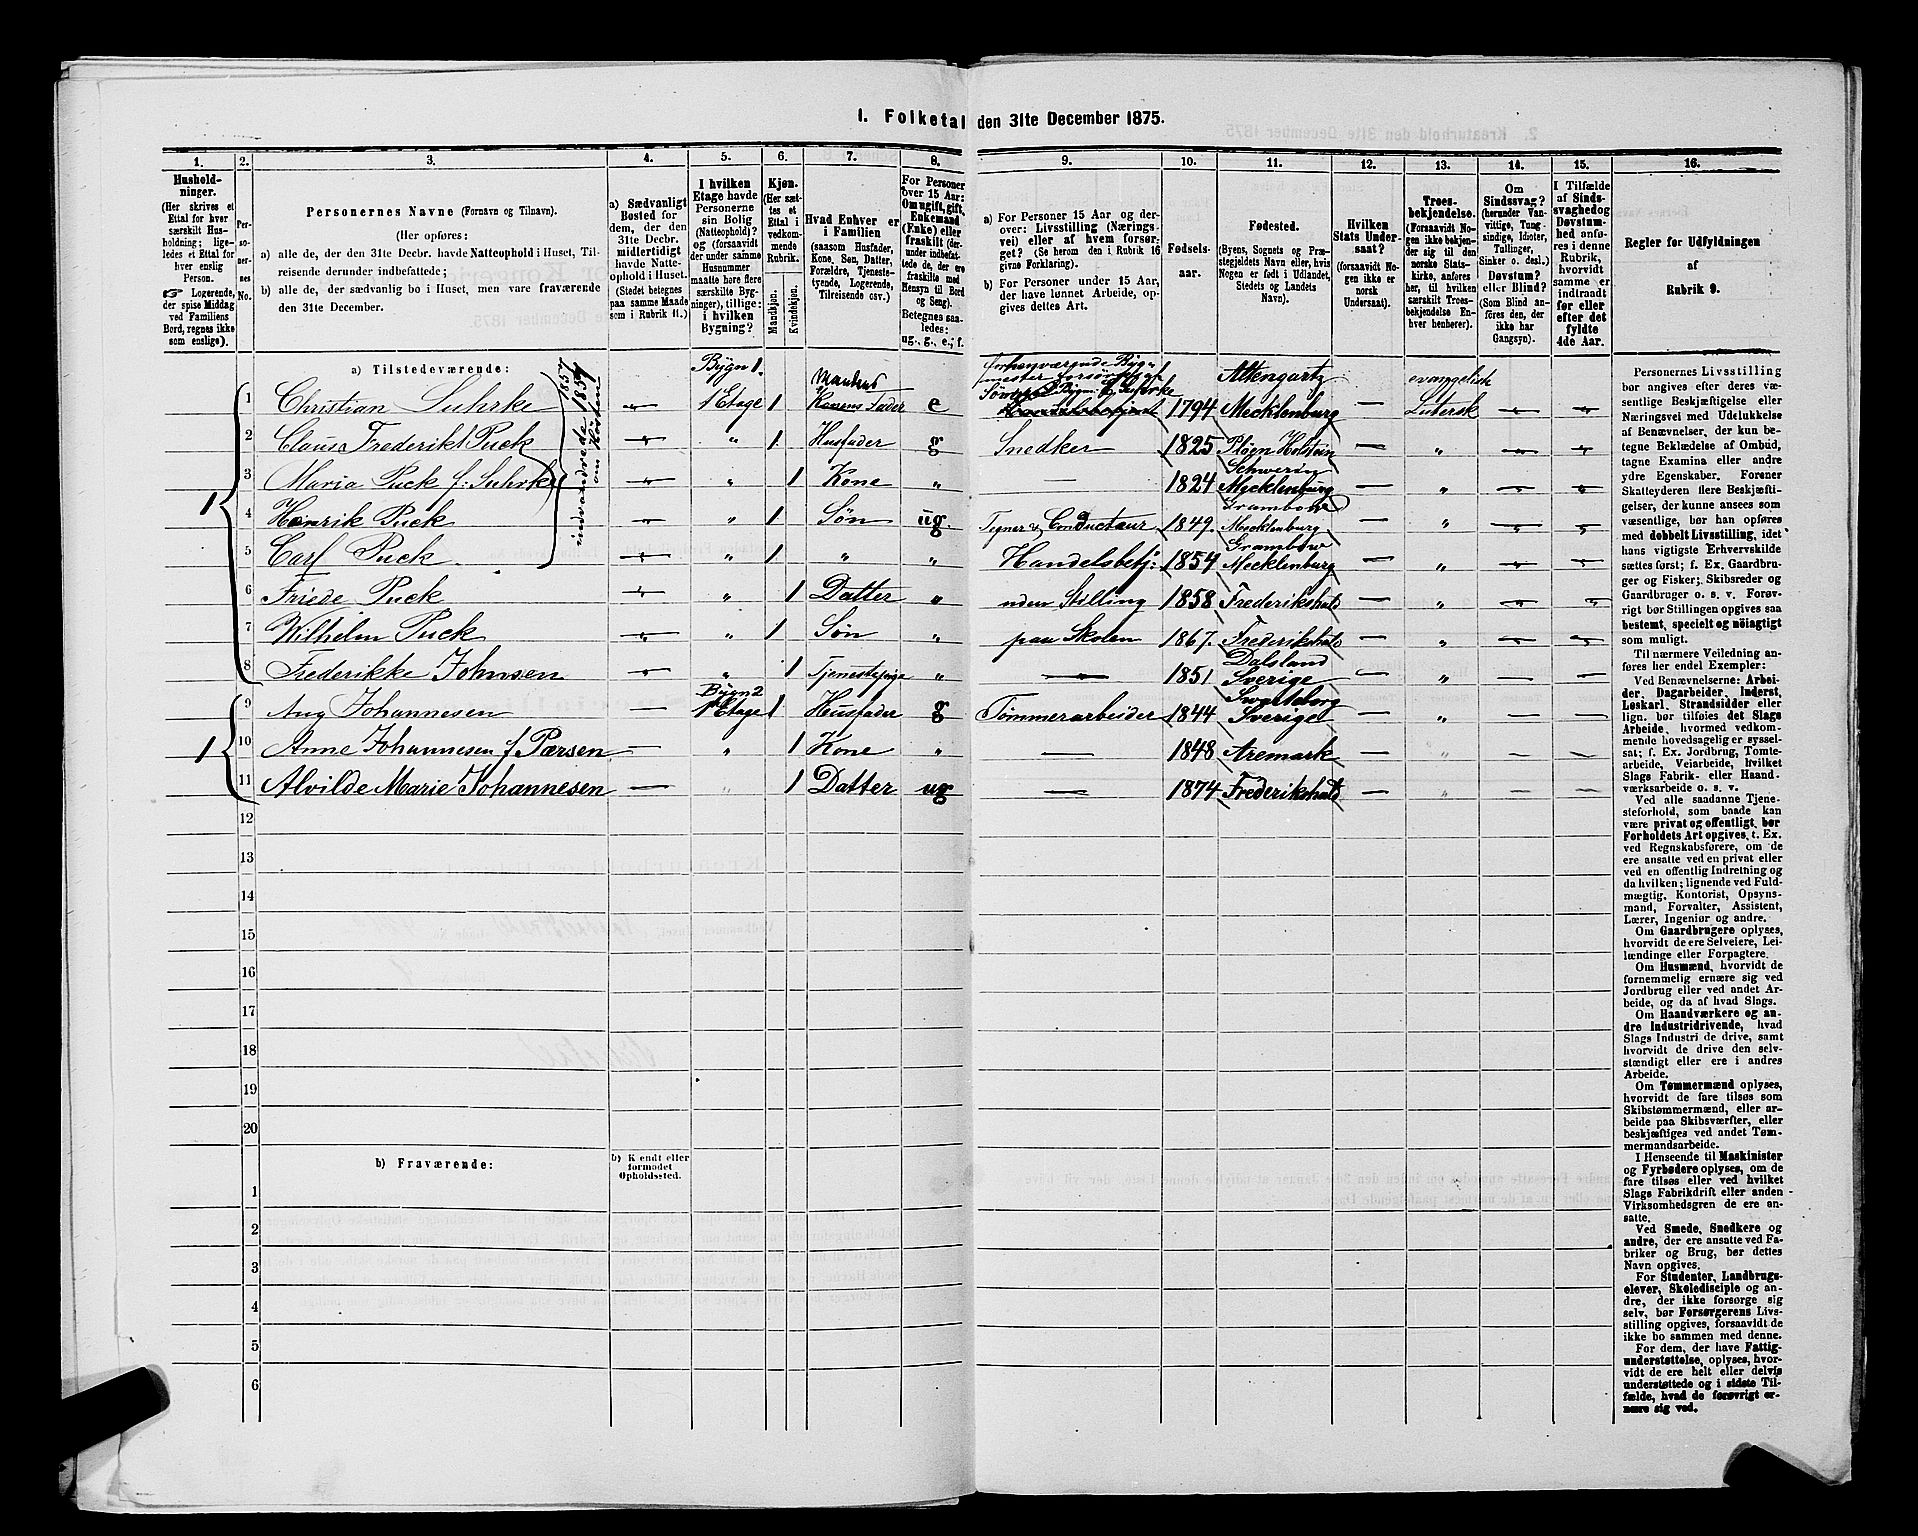 1. Folketal den 31te December 1875.
1. 2. 3. 4. 5. 6. 7. 8. 9. 10. 11. 12. 13. 14. 15. 16.
Hushold-
ninger.
(Her skrives et
Ettal for hver
særskilt Hus-
holdning; lige-
ledes et Ettal
for hver
enslig
Person.
☞ Logerende,
der spise Middag
ved Familiens
Bord, regnes ikke
som enslige).
Per-
so-
ner-
nes
No.
Personernes Navne (Fornavn og Tilnavn).
(Her opføres:
a) alle de, der den 31te Decbr. havde Natteophold i Huset, Til-
reisende derunder indbefattede;
b) alle de, der sædvanlig bo i Huset, men vare fraværende
den 31te December.
a) Sædvanligt
Bosted for
dem, der den
31te Decbr.
midlertidigt
havde Natte-
ophold i Huset.
(Stedet betegnes
paa samme Maade
som i Rubrik 11.)
I hvilken
Etage havde
Personerne
sin Bolig
(Natteophold)?
og (forsaavidt
der under samme
Husnummer
maatte høre flere
særskilte Byg-
ninger), tillige:
i hvilken
Bygning?
Kjøn.
(Her sæt-
tes et
Ettal i
vedkom-
mende
Rubrik.
Mandkjøn.
Kvindekjøn.
Hvad Enhver er
i Familien
(saasom Husfader,
Kone, Søn, Datter,
Forældre, Tjeneste-
tyende, Logerende,
Tilreisende osv.)
For Personer
over 15 Aar:
Om ugift, gift,
Enkemand
(Enke) eller
fraskilt (der-
under indbefat-
tede de, der ere
fraskilte med
Hensyn til Bord
og Seng).
Betegnes saa-
ledes:
ug., g., e.; f.
a) For Personer 15 Aar og der-
over: Livsstilling (Nærings-
vei) eller af hvem forsør-
get? (Se herom den i Rubrik 16
givne Forklaring).
b) For Personer under 15 Aar,
der have lønnet Arbeide, op-
gives dettes Art.
Fødsels-
aar.
Fødested.
(Byens, Sognets og Præ-
stegjeldets Navn eller, hvis
Nogen er født i Udlandet,
Stedets og Landets
Navn).
Hvilken
Stats Under-
saat?
(forsaavidt No-
gen ikke er
norsk
Undersaat).
Troes-
bekjendelse.
(Forsaavidt No-
gen ikke bekjen-
der sig til den
norske Stats-
kirke, anføres
her, til hvilken
særskilt Troes-
bekjendelse En-
hver henhører).
Om
Sindssvag?
(herunder Van-
vittige, Tung-
sindige, Idioter,
Tullinger,
Sinker o. desl.)
Døvstum?
eller Blind?
(Som Blind an-
føres den, der
ikke har
Gangsyn).
I Tilfælde
af Sinds-
svaghed og
Døvstum-
hed anfø-
res i denne
Rubrik,
hvorvidt
samme er
indtraadt
før eller
efter det
fyldte
4de Aar.
Regler for Udfyldningen
af
Rubrik 9.
a) Tilstedeværende:
1 Christian Suhrke " Bygn 1. 1 Etage 1 Mandens Konens Fader e forhenværende Byg- mester forsørget af 1794 Altengartz Mecklenburg — evangelisk Lutersk " "
2 Claus Frederikt Puck " " 1 Husfader g Snedker 1825 Pløen Holstein — " " "
3 Maria Puck f: Suhrke " " 1 Kone " — 1824 Schwerin Mecklenburg — " " "
4 Henrik Puck " " 1 Søn ug. Tegner & Conducteur 1849. Grambow Mecklenburg — " " "
5 Carl Puck " " 1 " " Handelsbetj: 1854 Grambow Mecklenburg — " " "
indvandrede 1857 om Høsten
6 Friede Puck " " 1 Datter " uden Stilling 1858 Frederikshald — " " "
7 Wilhelm Puck " " 1 Søn " paa Skolen 1867. Frederikshald — " " "
8 Frederikke Johnsen " " 1 Tjenestepige " — 1851 Dalsland Sverige — " — —
9 Aug Johannesen — Bygn 2 1 Etage 1 Husfader g Tømmerarbeider 1844 Swarteborg Sverige — " — —
10 Anne Johannesen f Pærsen — " 1 Kone " — 1848 Aremark — " — —
11 Alvilde Marie Johannesen — " 1 Datter ug — 1874 Frederikshald — " — —
12
13
14
15
16
17
18
19
20
b) Fraværende:
b) Kjendt eller
formodet
Opholdssted.
1
2
3
4
5
6
Personernes Livsstilling
bør angives efter deres væ-
sentlige Beskjæftigelse eller
Næringsvei med Udelukkelse
af Benævnelser, der kun be-
tegne Beklædelse af Ombud,
tagne Examina eller andre
ydre Egenskaber. Forener
Skatteyderen flere Beskjæfti-
gelser, der kunne ansees som
væsentlige, bør han opføres
med dobbelt Livsstilling, idet
hans vigtigste Erhvervskilde
sættes først; f. Ex. Gaardbru-
ger og Fisker; Skibsreder og
Gaardbruger o. s. v. Forøv-
rigt bør Stillingen opgives saa
bestemt, specielt og nöiagtigt
som muligt.
Til nærmere Veiledning an-
føres her endel Exempler:
Ved Benævnelserne: Arbei-
der, Dagarbeider, Inderst,
Løskarl, Strandsidder eller
lign. bør tilføies det Slags
Arbeide, hvormed vedkom-
mende hovedsagelig er syssel-
sat; f. Ex. Jordbrug, Tomte-
arbeide, Veiarbeide, hvilket
Slags Fabrik- eller Haand-
værksarbeide o. s. v.
Ved alle saadanne Tjene-
steforhold, som baade kan
være privat og offentligt, bør
Forholdets Art opgives, t. Ex.
ved Regnskabsførere, om de
ere ansatte ved en privat eller
ved en offentlig Indretning og
da hvilken; lignende ved Fuld-
mægtig, Kontorist, Opsyns-
mand, Forvalter, Assistent,
Lærer, Ingeniør og andre.
Om Gaardbrugere oplyses,
hvorvidt de ere Selveiere, Lei-
lændinge eller Forpagtere.
Om Husmænd, hvorvidt de
fornemmelig ernære sig ved
Jordbrug eller ved andet Ar-
beide, og da af hvad Slags.
Om Haandværkere og an-
dre Industridrivende, hvad
Slags Industri de drive, samt
hvorvidt de drive den selv-
stændigt eller ere i andres
Arbeide.
Om Tømmermænd oplyses,
hvorvidt de fare tilsøs som
Skibstømmermænd, eller ar-
beide paa Skibsværfter, eller
beskjæftiges ved andet Tøm-
mermandsarbeide.
I Henseende til Maskinister
og Fyrbødere oplyses, om de
fare tilsøs eller ved hvilket
Slags Fabrikdrift eller anden
Virksomhedsgren de ere an-
satte.
Ved Smede, Snedkere og
andre, der ere ansatte ved Fa-
briker og Brug, bør dettes
Navn opgives.
For Studenter, Landbrugs-
elever, Skoledisciple og an-
dre, der ikke forsørge sig
selv, bør Forsørgerens Livs-
stilling opgives, forsaavidt de
ikke bo sammen med denne.
For dem, der have Fattig-
understøttelse, oplyses, hvor-
vidt de ere helt eller delvis
understøttede og i sidste Til-
fælde, hvad de forøvrigt er-
nære sig ved.